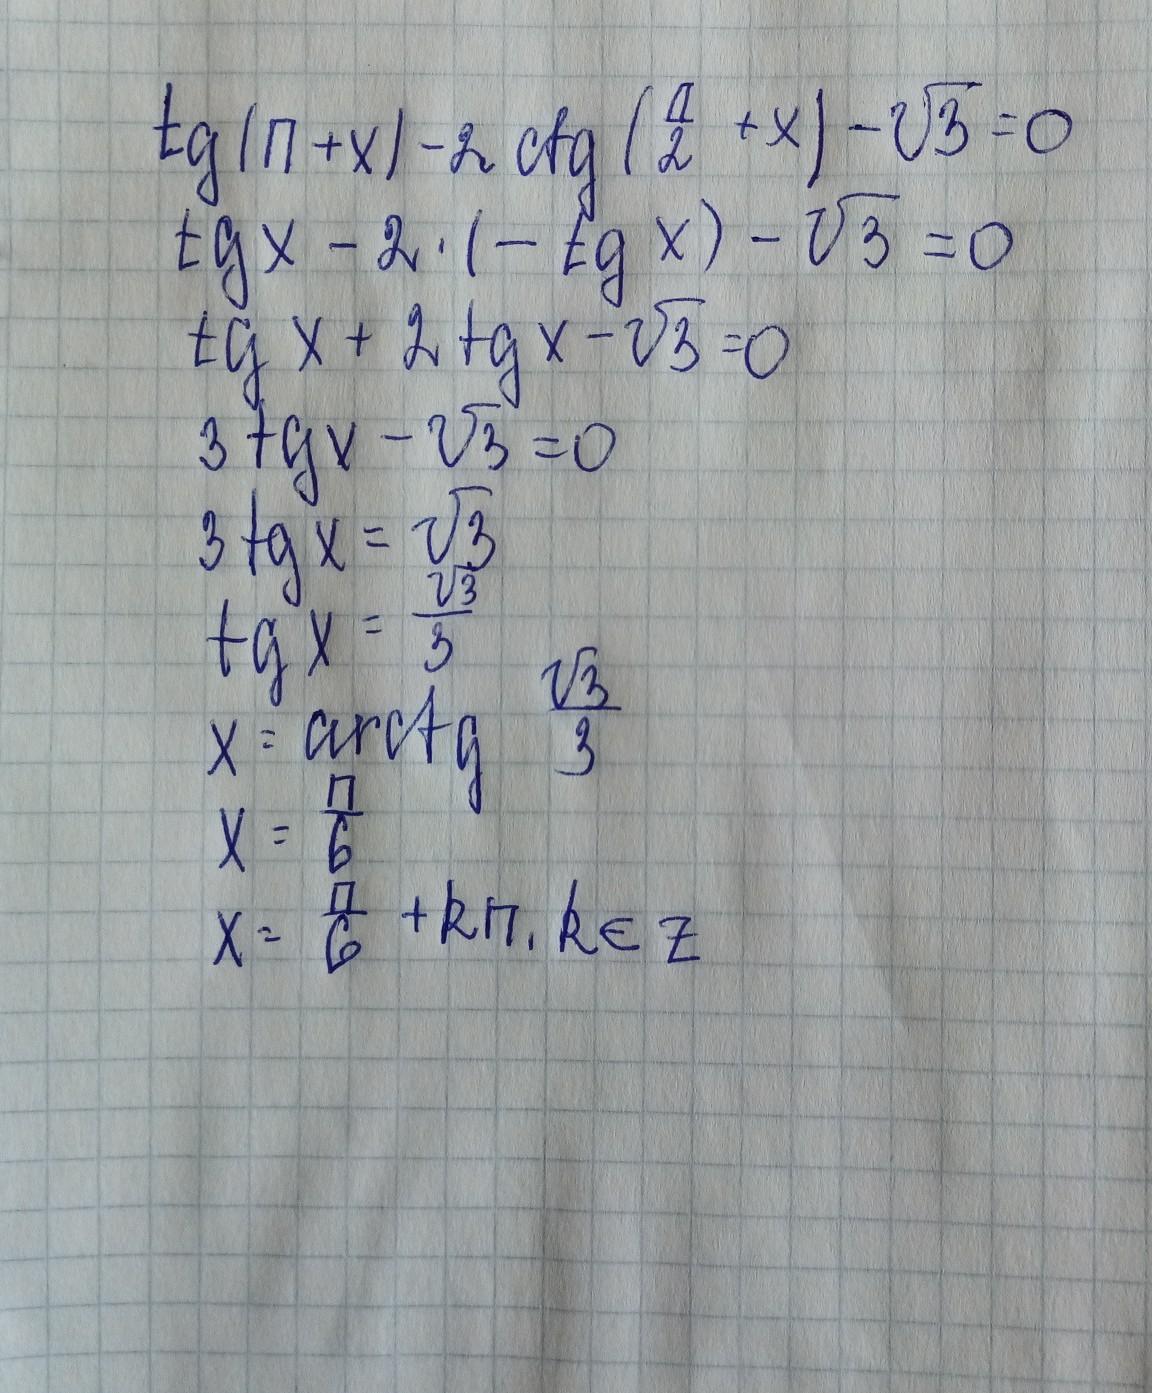 tg(π+x)-2ctg(π/2+x)-√3=0
tgx-2·(-tgx)-√3=0
tgx+2tgx-√3=0
3tgx-√3=0
3tgx=√3
tgx=√3/3
x=arctg √3/3
x=π/6
x=π/6+kπ, k∈z